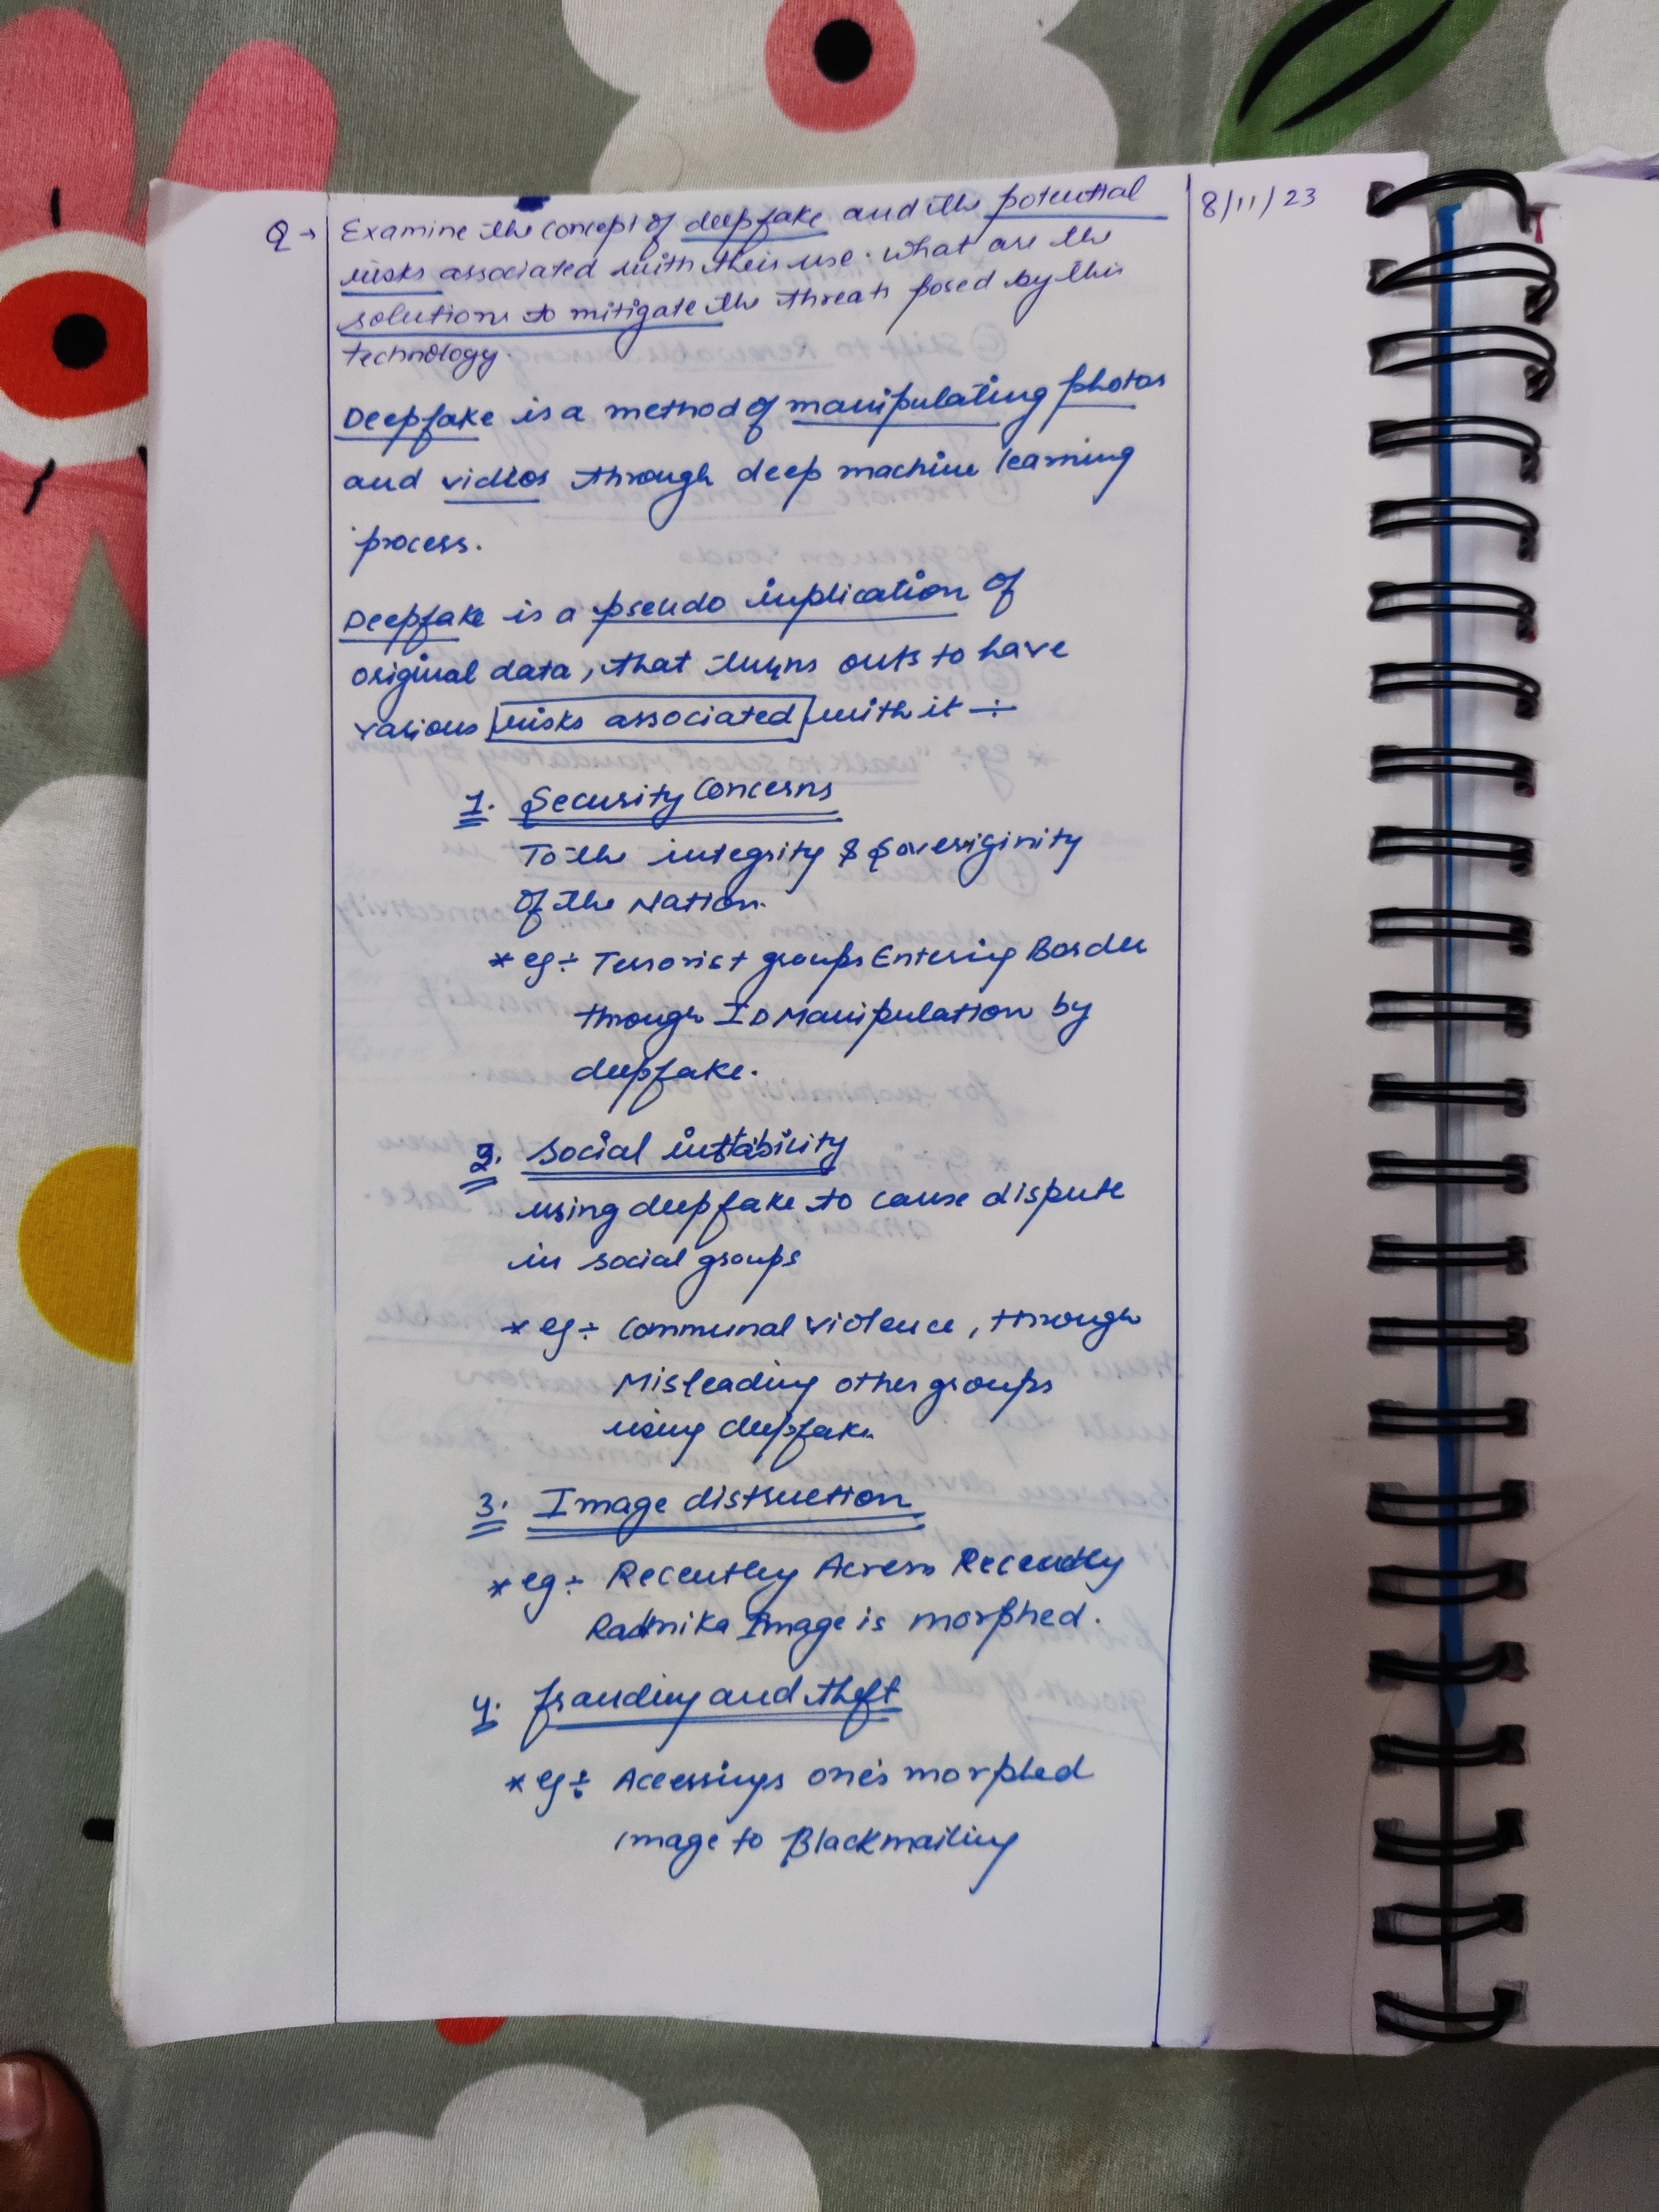 8/11/23
Q → Examine the concept of deepfake and the potential
risks associated with their use. what are the
solutions to mitigate the threats posed by this
technology.
Deepfake is a method of manipulating photos
and videos through deep machine learning
process.
Deepfake is a pseudo implication of
original data, that turns outs to have
various risks associated with it ÷
1. Security Concerns
To the integrity & Soveriginity
Of the Nation.
* eg ÷ Terrorist groups Entering Border
through ID Manipulation by
deepfake.
2. Social instability
using deepfake to cause dispute
in social groups
* eg ÷ Communal violence, through
Misleading other groups
using deepfake
3. Image distruction
* eg ÷ Recently Recently
Image is morphed.
4. frauding and theft
* eg ÷ Accessings one's morphed
image to Blackmailing